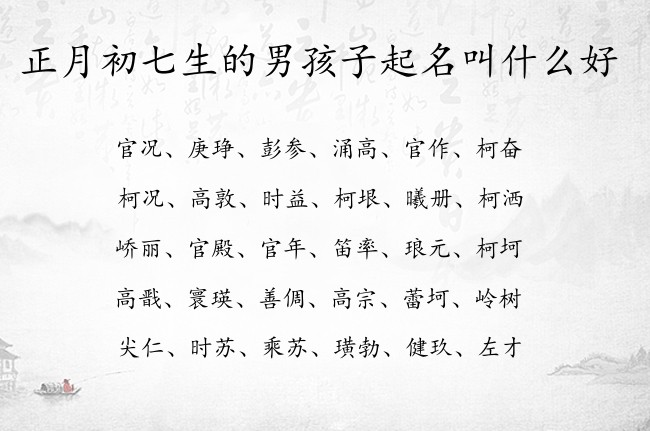 正月初七生的男孩子起名叫什么好
官况、庚琤、彭参、涌高、官作、柯奋
柯况、高敦、时益、柯垠、曦册、柯洒
峤丽、官殿、官年、笛率、琅元、柯坷
高戬、寰瑛、善倜、高宗、蕾坷、岭树
尖仁、时苏、乘苏、璜勃、健玖、左才